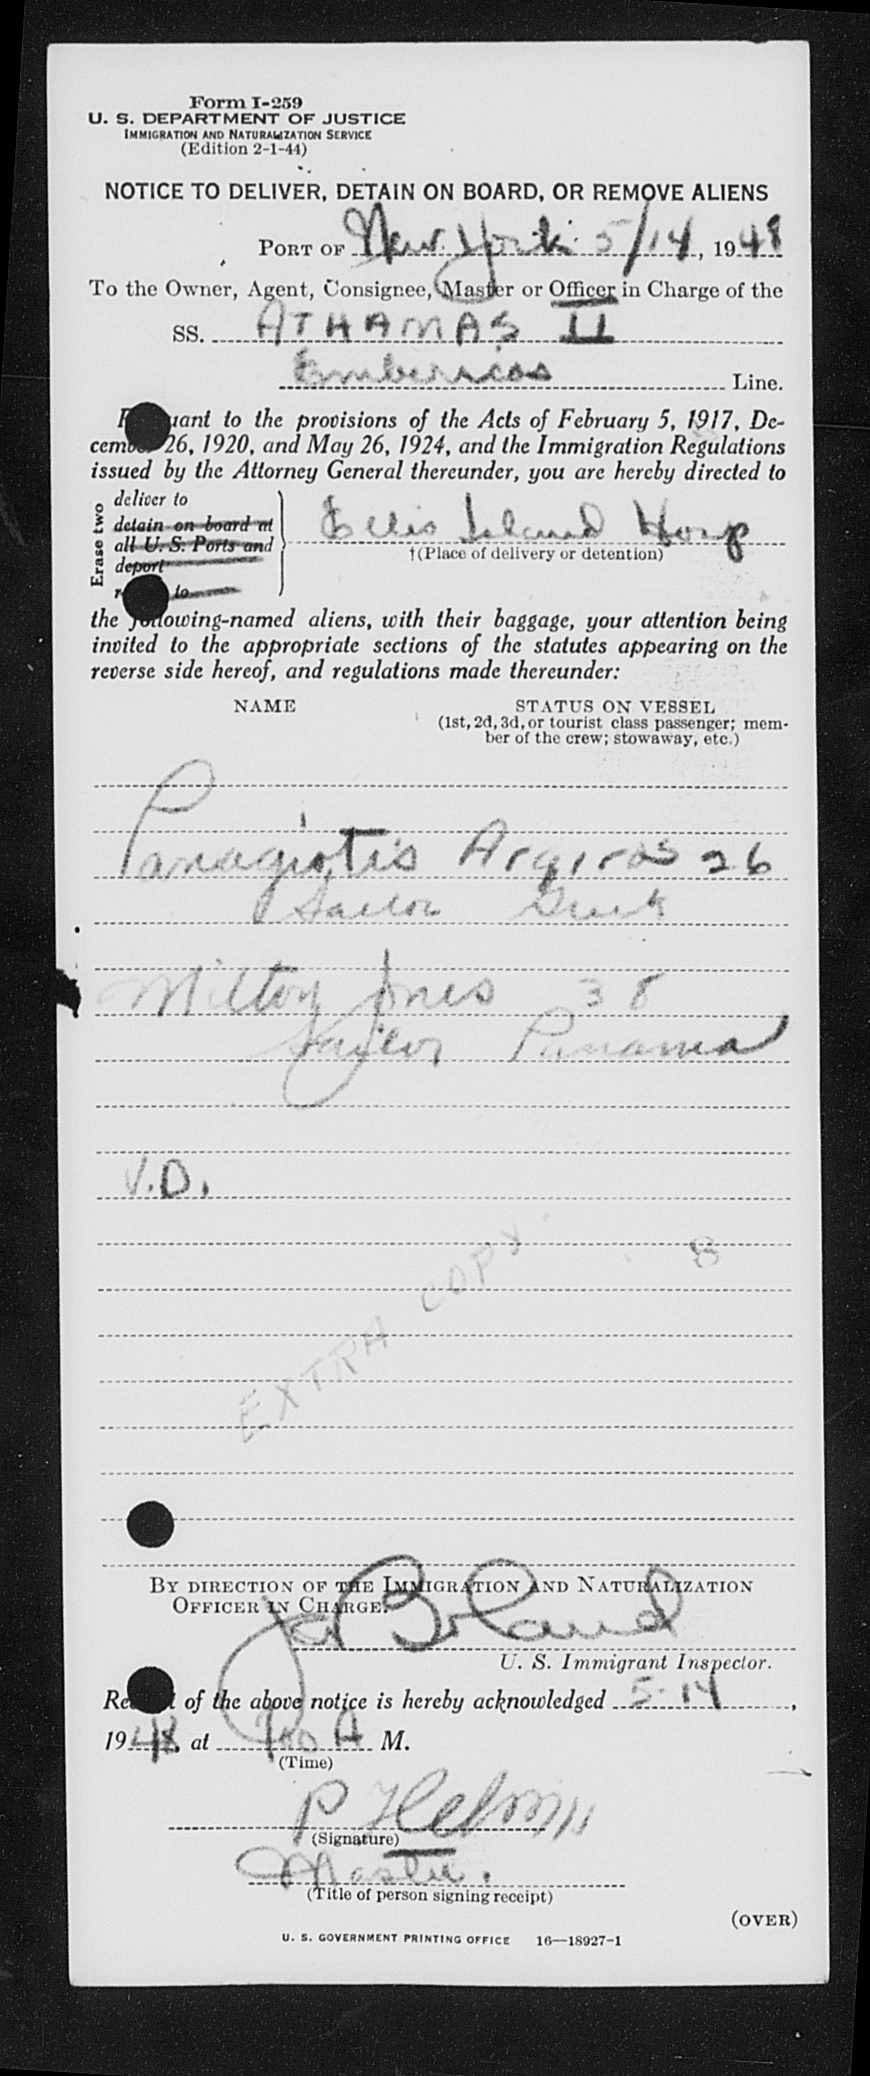 Form I-259
U. S. DEPARTMENT OF JUSTICE
IMMIGRATION AND NATURALIZATION SERVICE
(Edition 2-1-44)
NOTICE TO DELIVER, DETAIN ON BOARD, OR REMOVE ALIENS
PORT OF New York 5/14, 1948
To the Owner, Agent, Consignee, Master or Officer in Charge of the
SS. ATHAMAS II
Embericos Line.
Pursuant to the provisions of the Acts of February 5, 1917, De-
cember 26, 1920, and May 26, 1924, and the Immigration Regulations
issued by the Attorney General thereunder, you are hereby directed to
Erase two
deliver to
detain on board at
all U. S. Ports and
deport
to
Ellis Island Hosp
†(Place of delivery or detention)
the following-named aliens, with their baggage, your attention being
invited to the appropriate sections of the statutes appearing on the
reverse side hereof, and regulations made thereunder:
NAME STATUS ON VESSEL
(1st, 2d, 3d, or tourist class passenger; mem-
ber of the crew; stowaway, etc.)
Panagiotis Argiros 26
Sailor Greek
Milton Jones 38
Sailor Panama
V.D.
8
EXTRA COPY.
BY DIRECTION OF THE IMMIGRATION AND NATURALIZATION
OFFICER IN CHARGE.
Boland
U. S. Immigrant Inspector.
Receipt of the above notice is hereby acknowledged 5-14,
1948, at A M.
(Time)
P
(Signature)
Master.
(Title of person signing receipt)
(OVER)
U. S. GOVERNMENT PRINTING OFFICE 16—18927-1